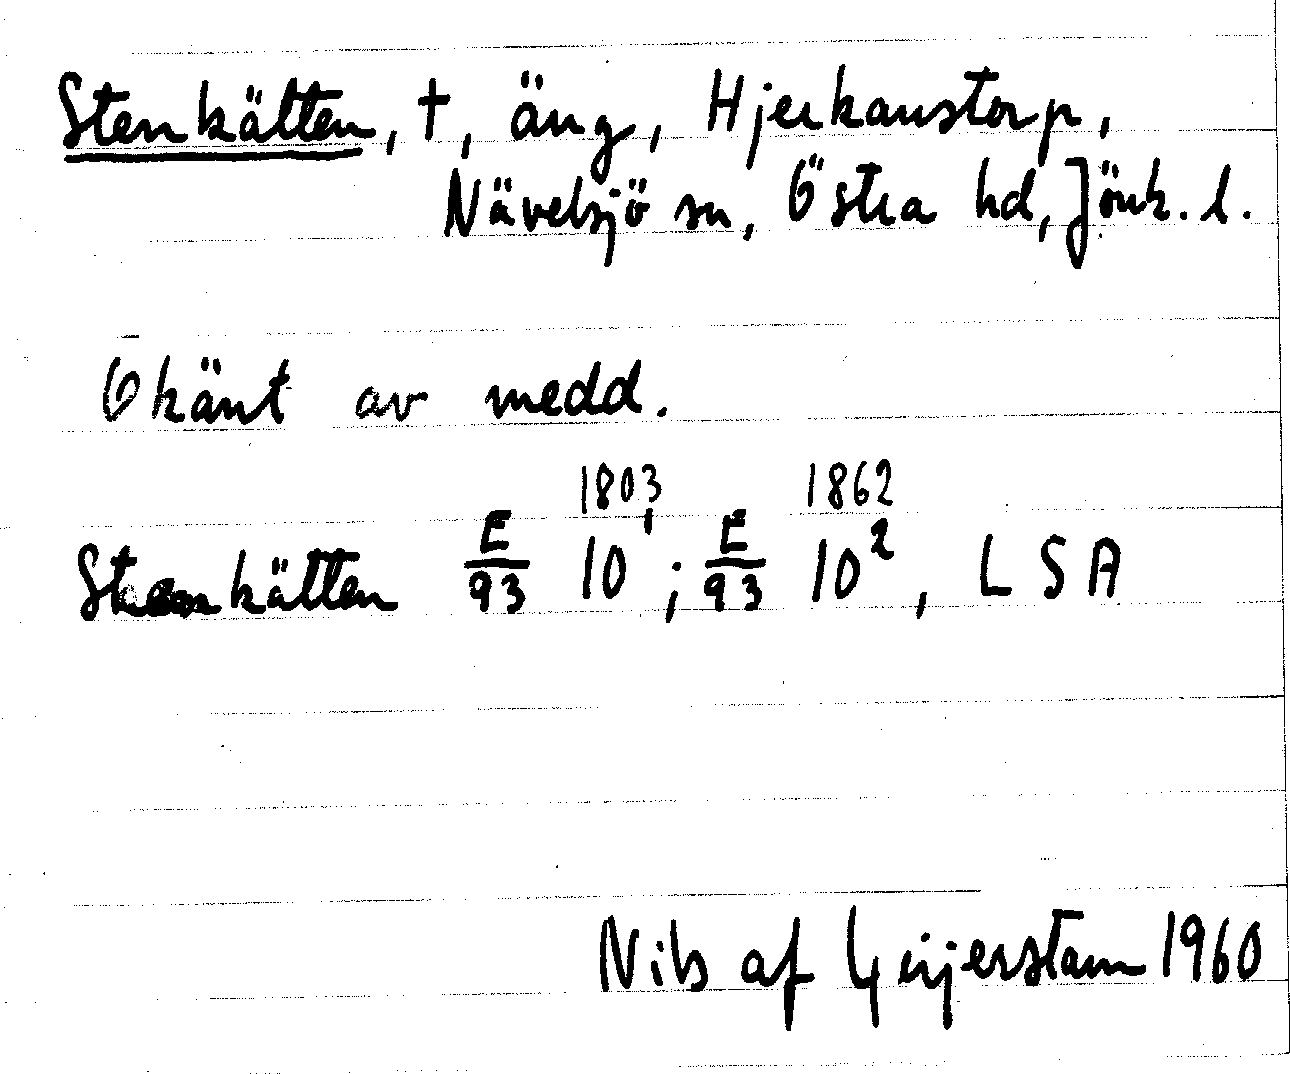 Stenkätten, †, äng, Hjerkanstorp,
Nävelsjö sn, Östra hd, Jönk. l.
Okänt av medd.
1803 1862
Stenkätten E/93 10¹; E/93 10², LSA
Nils af Geijerstam 1960